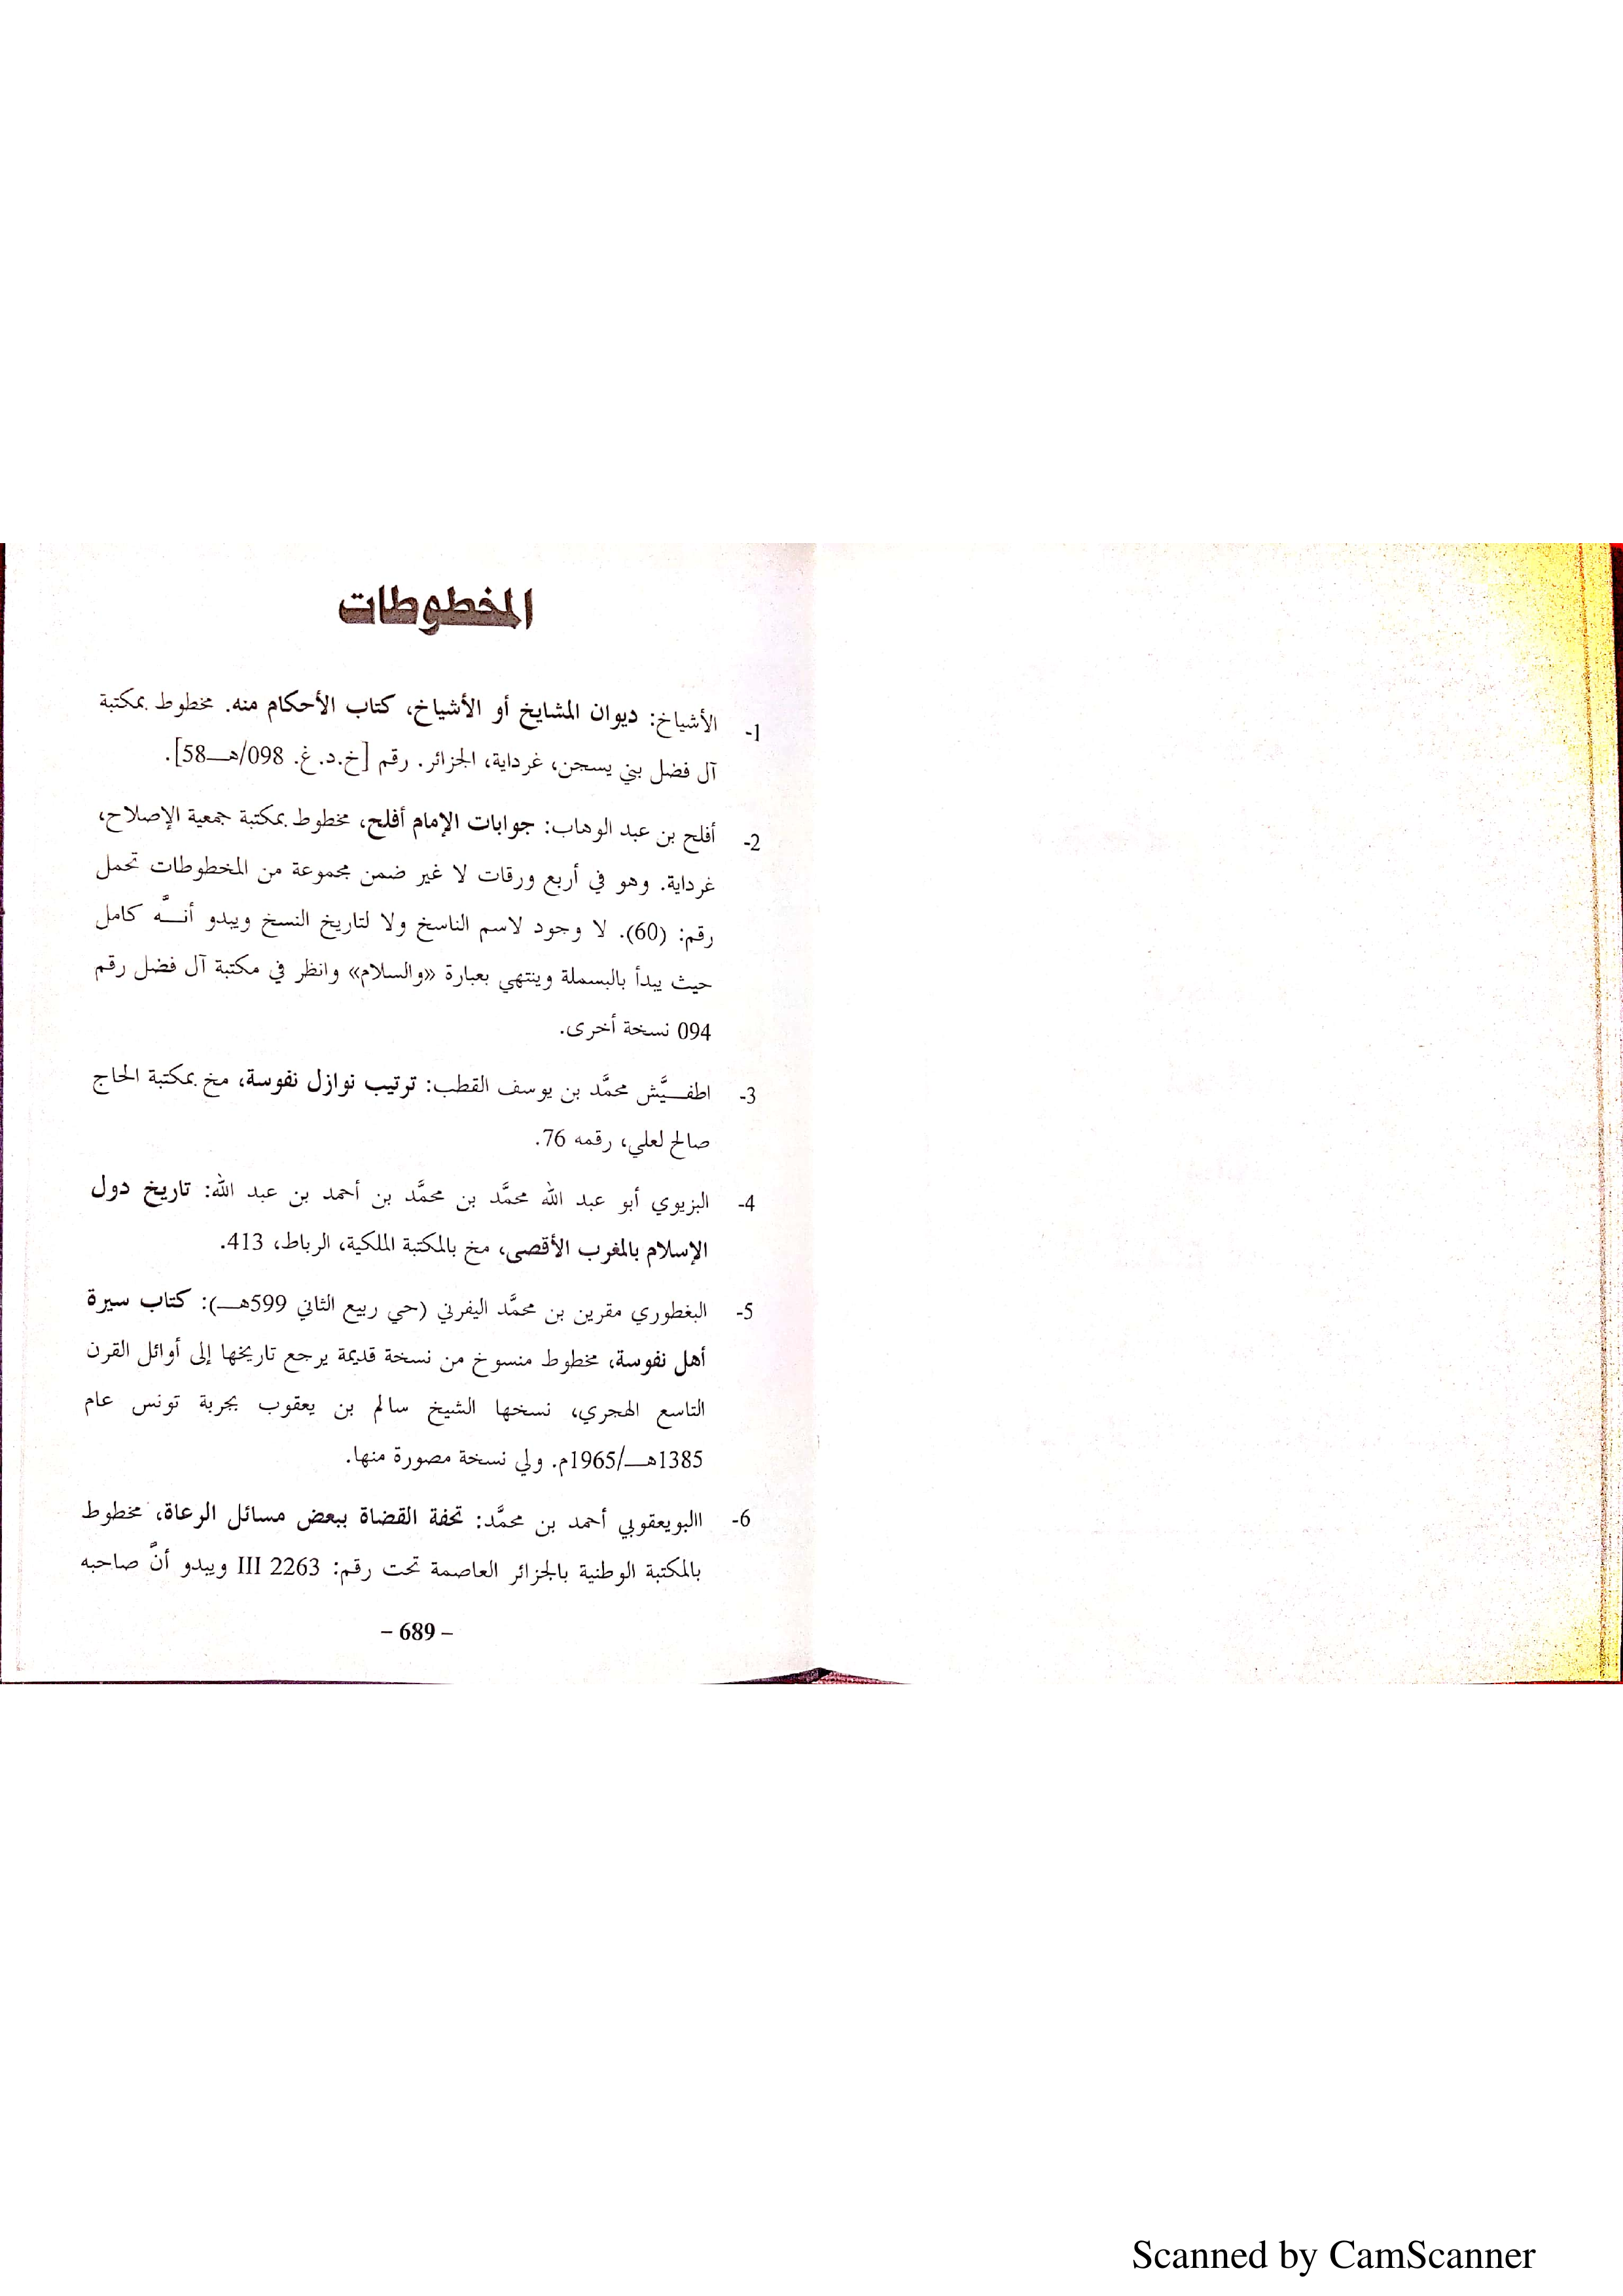 المخطوطات
1- الأشياخ: ديوان المشايخ أو الأشياخ، كتاب الأحكام منه. مخطوط بمكتبة
آل فضل بني يسجن، غرداية، الجزائر. رقم [خ.د.غ. 098/هـ58].
2- أفلح بن عبد الوهاب: جوابات الإمام أفلح، مخطوط بمكتبة جمعية الإصلاح،
غرداية. وهو في أربع ورقات لا غير ضمن مجموعة من المخطوطات تحمل
رقم: (60). لا وجود لاسم الناسخ ولا لتاريخ النسخ ويبدو أنـَّه كامل
حيث يبدأ بالبسملة وينتهي بعبارة «والسلام» وانظر في مكتبة آل فضل رقم
094 نسخة أخرى.
3- اطفـيَّش محمَّد بن يوسف القطب: ترتيب نوازل نفوسة، مخ بمكتبة الحاج
صالح لعلي، رقمه 76.
4- البزيوي أبو عبد الله محمَّد بن محمَّد بن أحمد بن عبد الله: تاريخ دول
الإسلام بالمغرب الأقصى، مخ بالمكتبة الملكية، الرباط، 413.
5- البغطوري مقرين بن محمَّد اليفرني (حي ربيع الثاني 599هـ): كتاب سيرة
أهل نفوسة، مخطوط منسوخ من نسخة قديمة يرجع تاريخها إلى أوائل القرن
التاسع الهجري، نسخها الشيخ سالم بن يعقوب بجربة تونس عام
1385هـ/1965م. ولي نسخة مصورة منها.
6- االبويعقوبي أحمد بن محمَّد: تحفة القضاة ببعض مسائل الرعاة، مخطوط
بالمكتبة الوطنية بالجزائر العاصمة تحت رقم: 2263 III ويبدو أنَّ صاحبه
– 689 –
Scanned by CamScanner